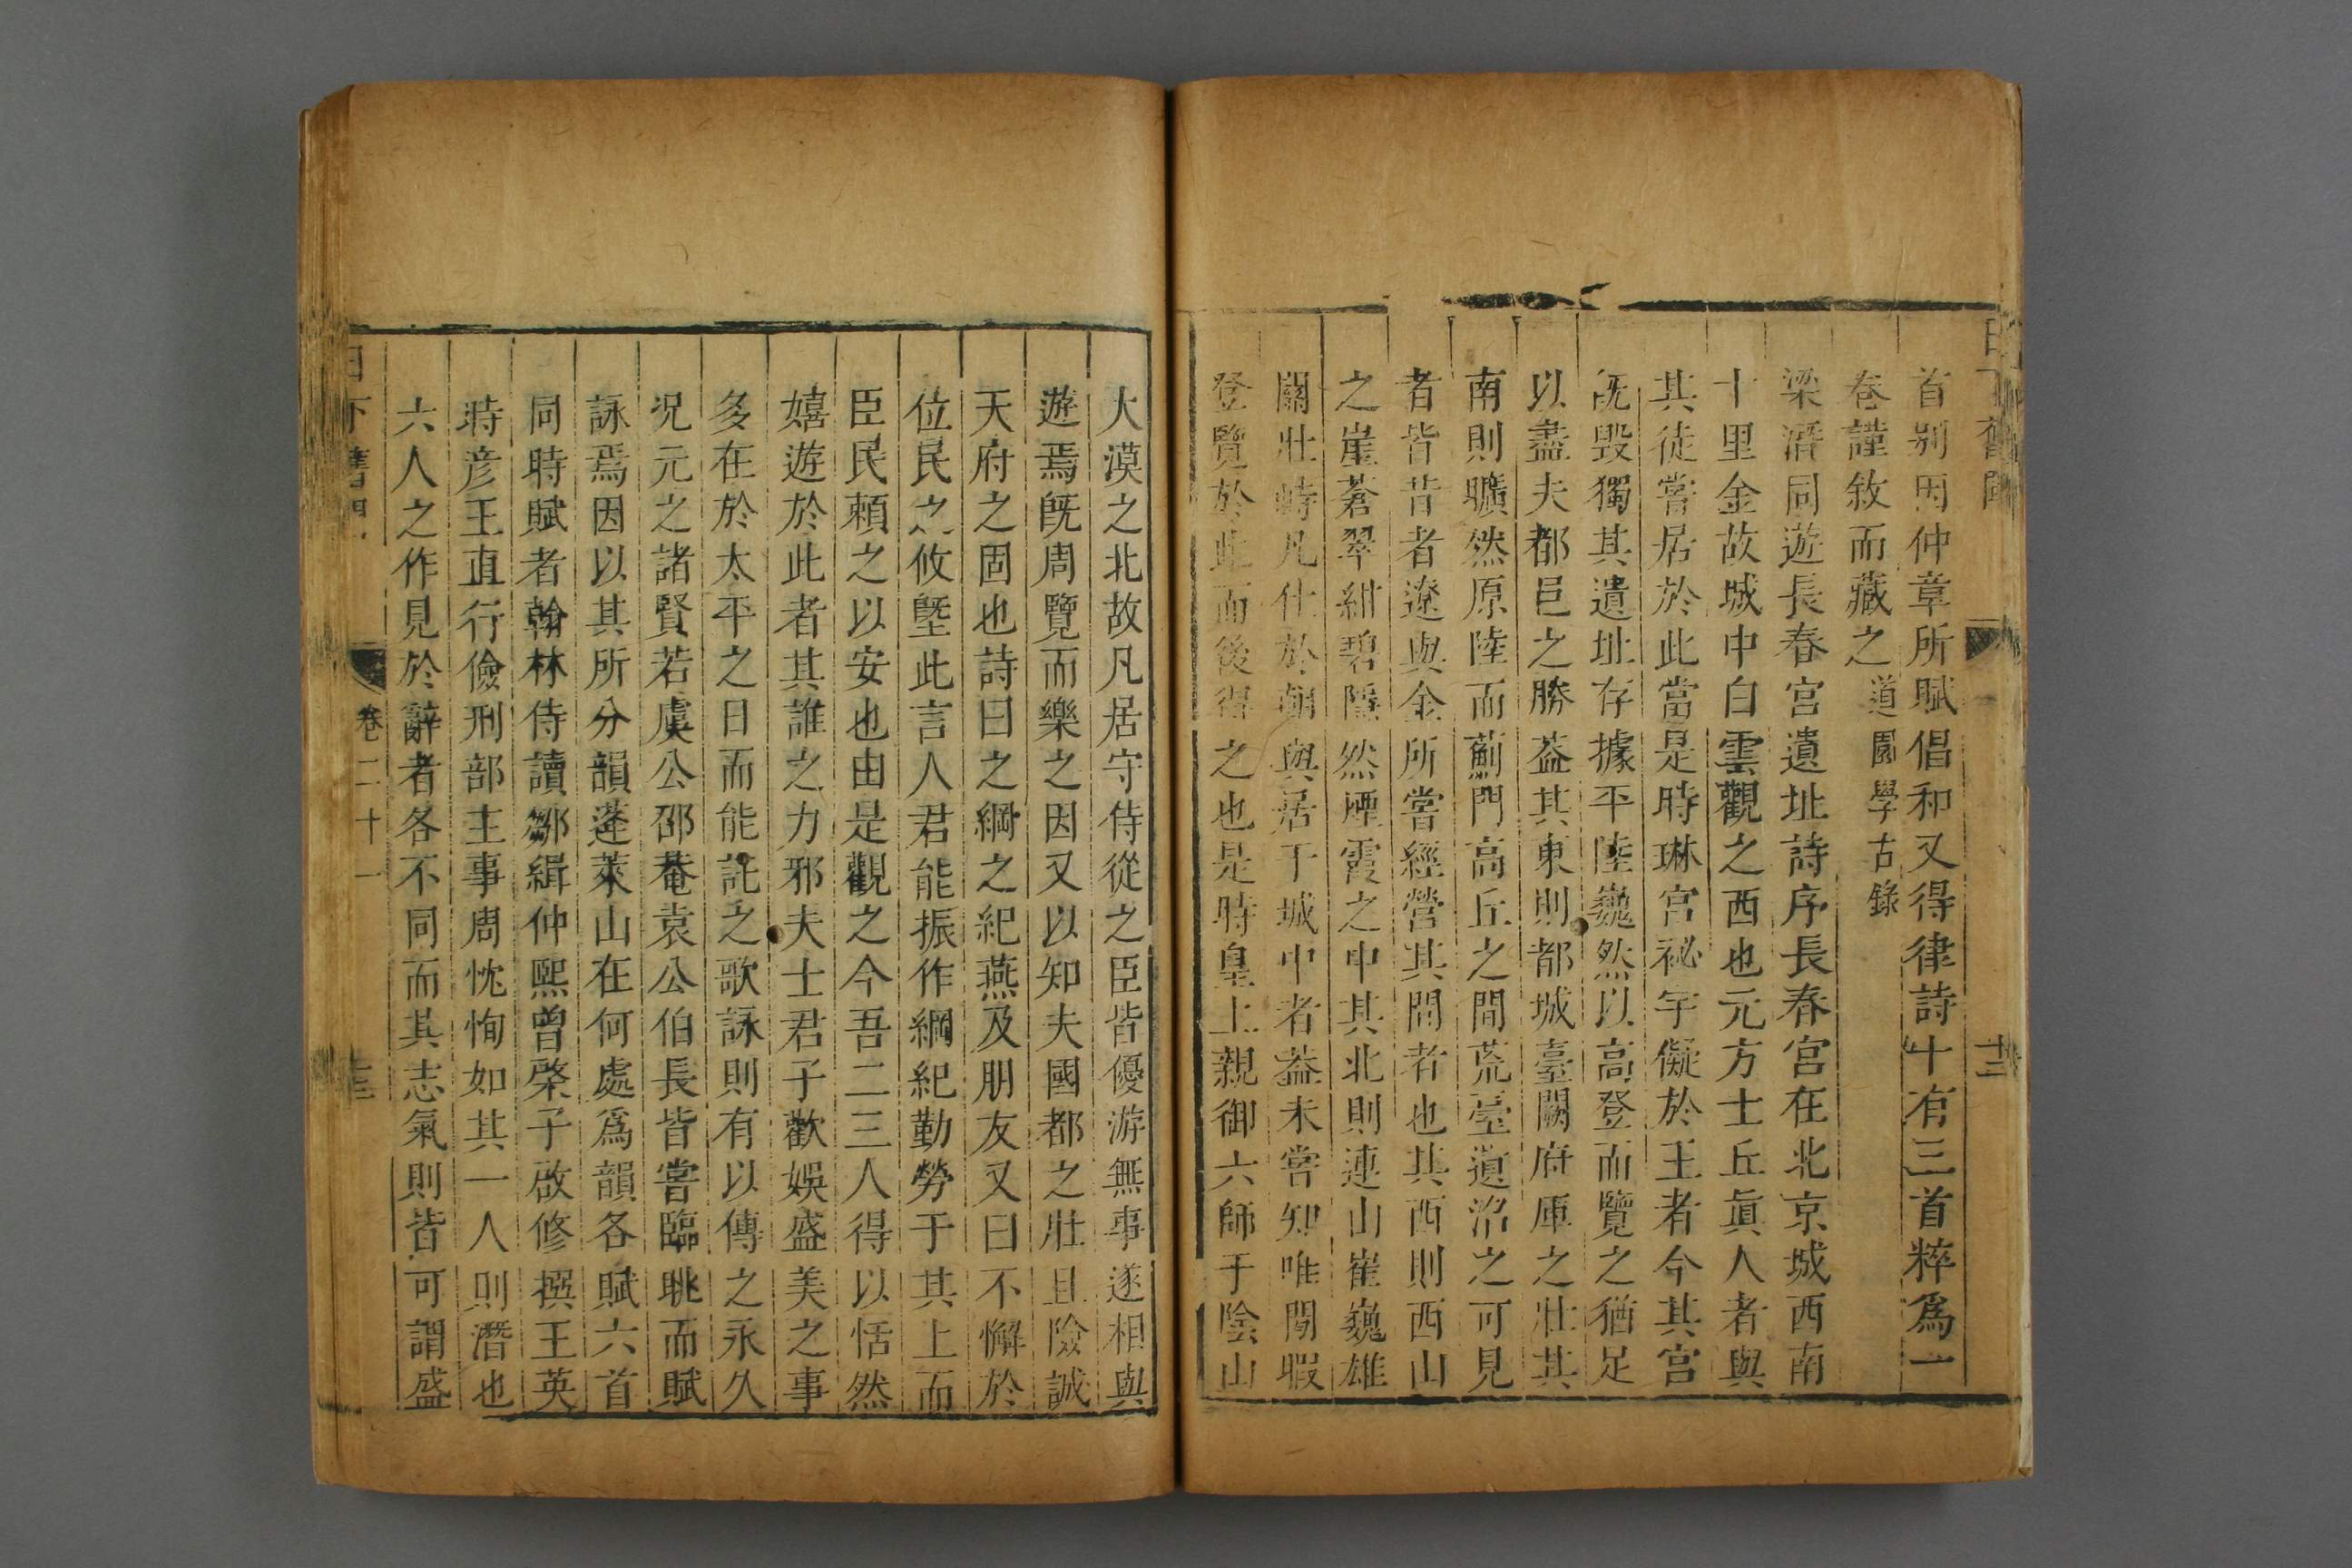 首別因仲章所賦倡和又得律詩十有三首粹爲一
卷謹敘而藏之道園學古錄
梁潛同遊長春宮遺址詩序長春宮在北京城西南
十里金故城中白雲觀之西也元方士丘眞人者與
其徒嘗居於此當是時琳宮祕宇儗於王者今其宮
既毀獨其遺址存據平陸巍然以高登而覽之猶足
以盡夫都邑之勝葢其東則都城臺闕府庫之壯其
南則曠然原陸而薊門高丘之間荒臺遺沼之可見
者皆昔者遼與金所嘗經營其間者也其西則西山
之崖蒼翠紺碧隱然煙霞之中其北則連山崔巍雄
關壯峙凡仕於朝與居于城中者葢未嘗知唯閒暇
登覽於此而後得之也是時皇上親御六師于陰山
大漠之北故凡居守侍從之臣皆優游無事遂相與
遊焉既周覽而樂之因又以知夫國都之壯且險誠
天府之固也詩曰之綱之紀燕及朋友又曰不懈於
位民之攸墍此言人君能振作綱紀勤勞于其上而
臣民賴之以安也由是觀之今吾二三人得以恬然
嬉遊於此者其誰之力邪夫士君子歡娛盛美之事
多在於太平之日而能託之歌詠則有以傳之永久
況元之諸賢若虞公邵菴袁公伯長皆嘗臨眺而賦
詠焉因以其所分韻蓬萊山在何處爲韻各賦六首
同時賦者翰林侍讀鄒緝仲熙曾棨子啟修撰王英
時彥王直行儉刑部主事周忱恂如其一人則潛也
六人之作見於辭者各不同而其志氣則皆可謂盛
日下舊聞
卷二十一